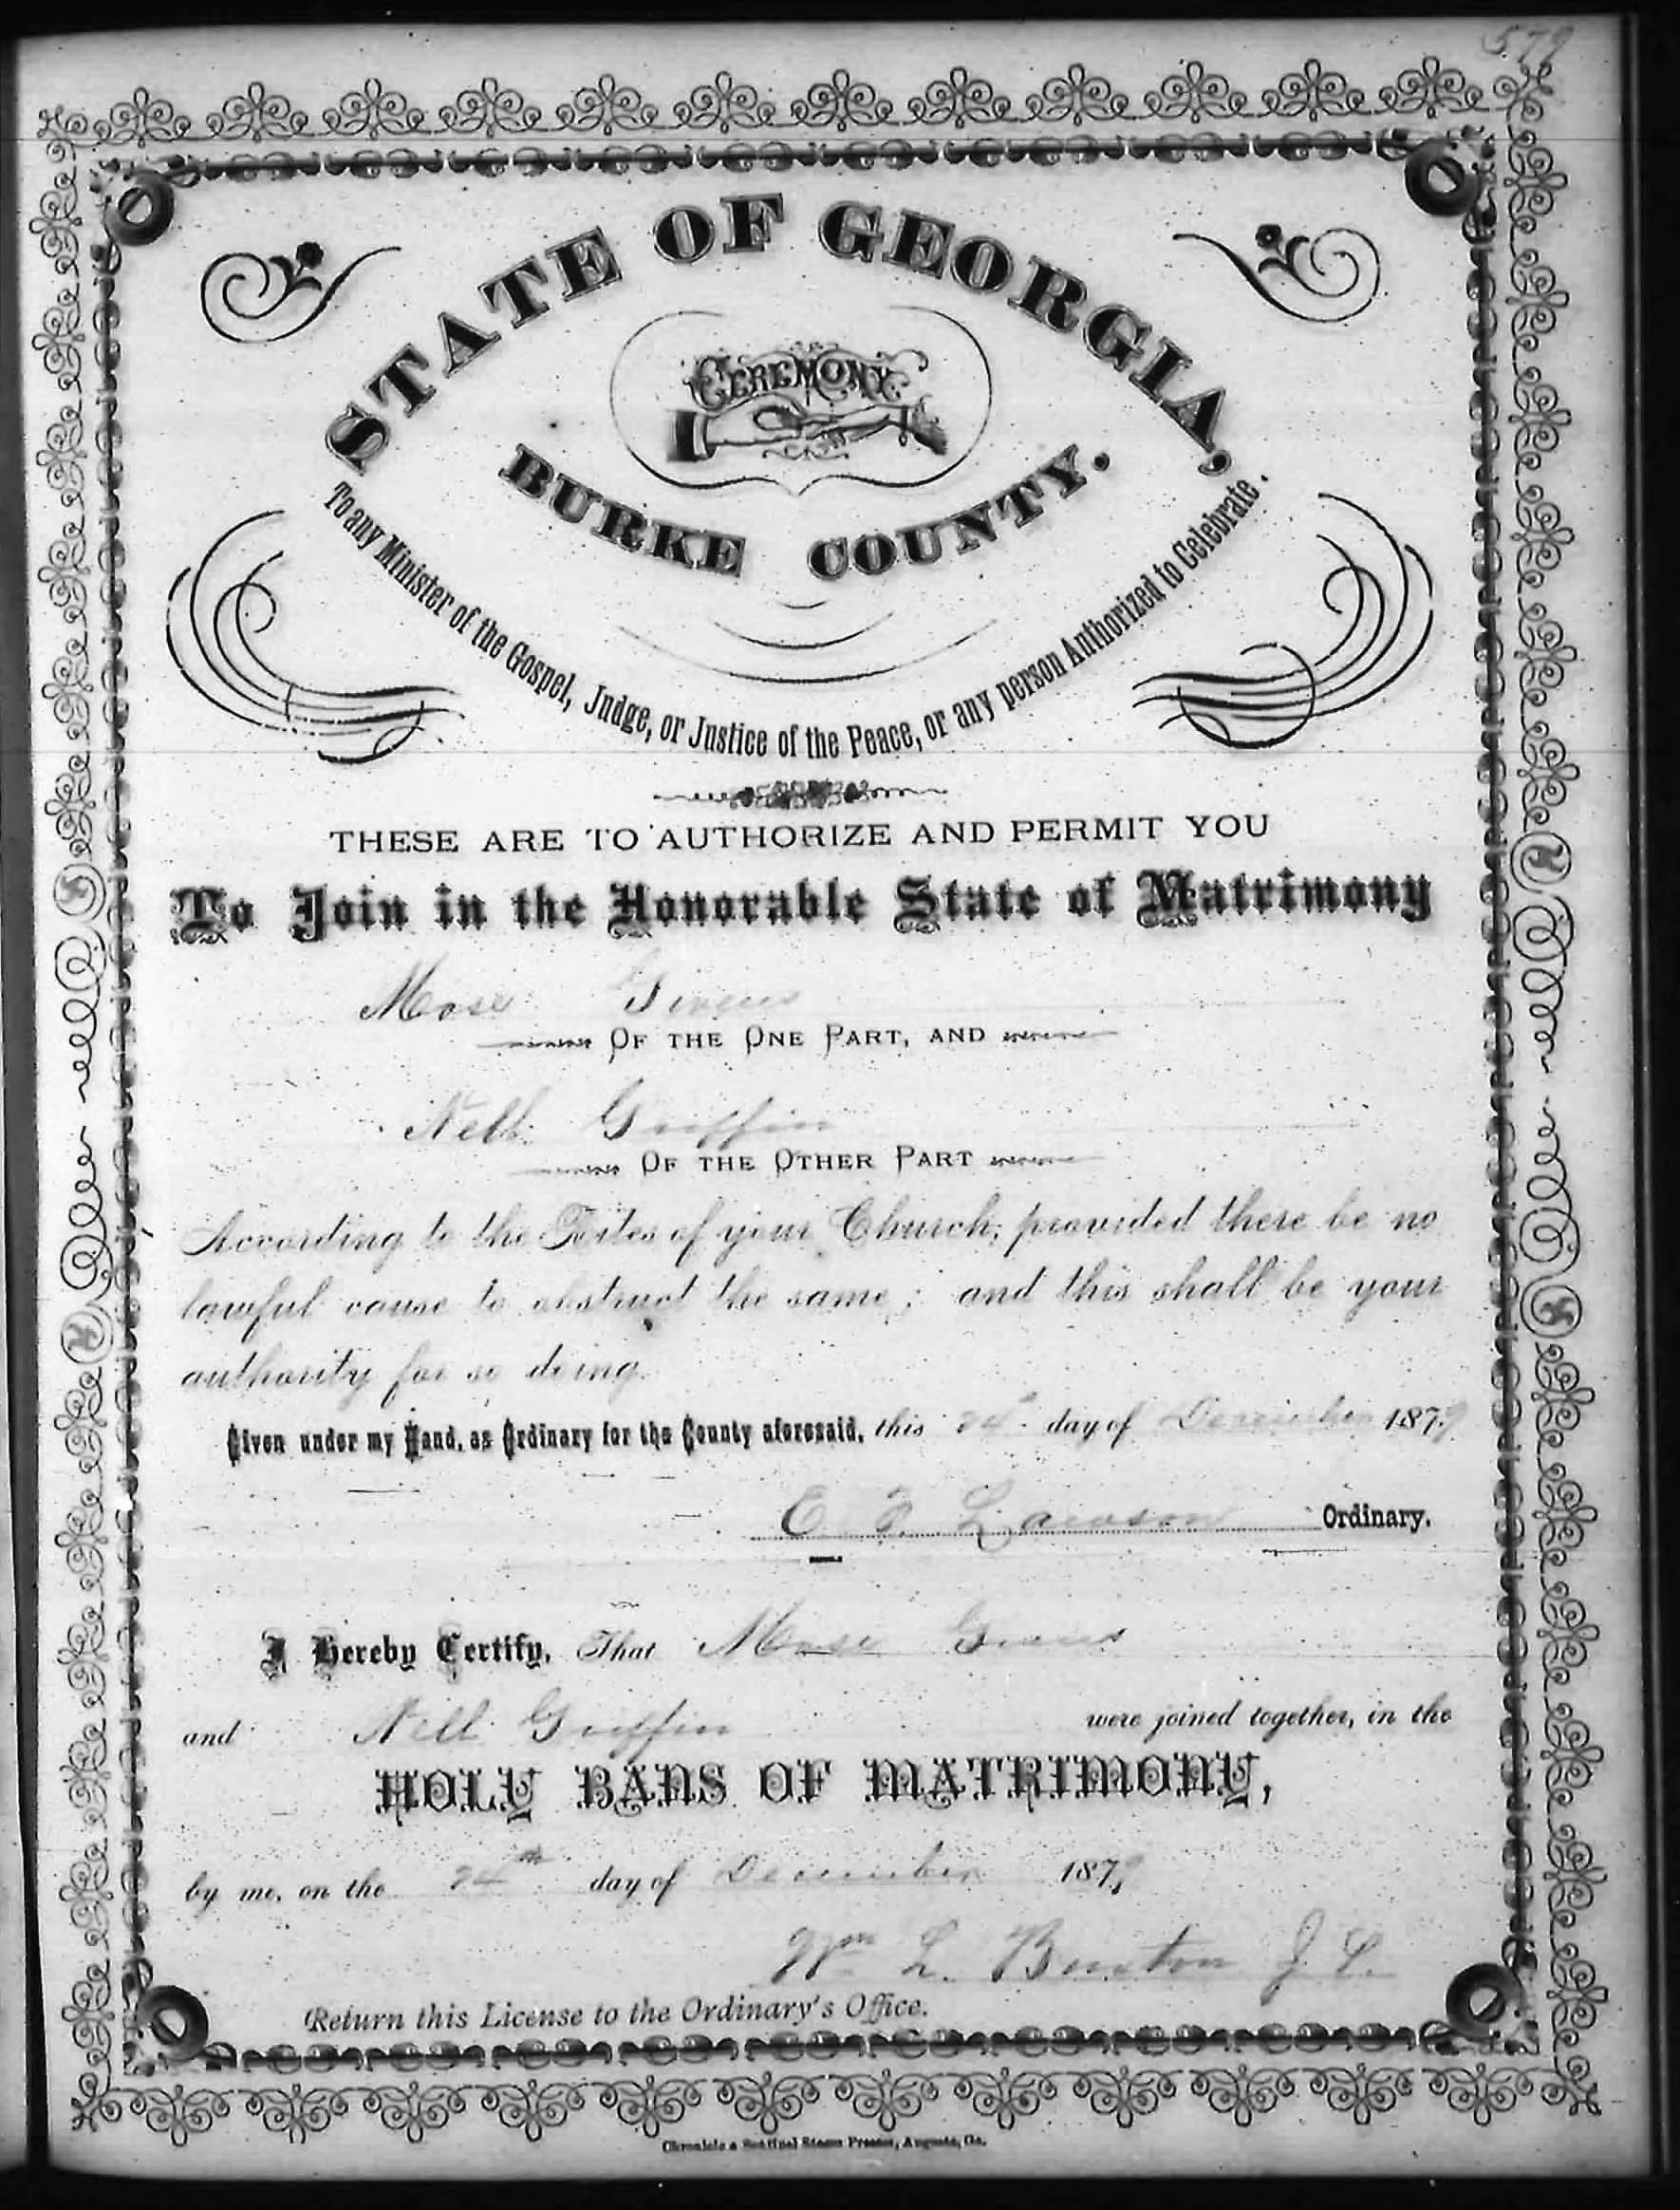 579
STATE OF GEORGIA,
CEREMONY
BURKE COUNTY.
To any Minister of the Gospel, Judge, or Justice of the Peace, or any person Authorized to Celebrate.
THESE ARE TO AUTHORIZE AND PERMIT YOU
To Join in the Honorable State of Matrimony
Mose Givens
OF THE ONE PART, AND
Nell Griffin
OF THE OTHER PART
According to the Rites of your Church; provided there be no
lawful cause to obstruct the same; and this shall be your
authority for so doing.
Given under my Hand, as Ordinary for the County aforesaid, this 24th day of December 1879
E. F. Lawson Ordinary.
I Hereby Certify, That Mose Givens
and Nell Griffin were joined together, in the
HOLY BANS OF MATRIMONY,
by me, on the 24th day of December 1879
Wm L. Buxton J. P.
Return this License to the Ordinary's Office.
Chronicle & Sentinel Steam Presses, Augusta, Ga.